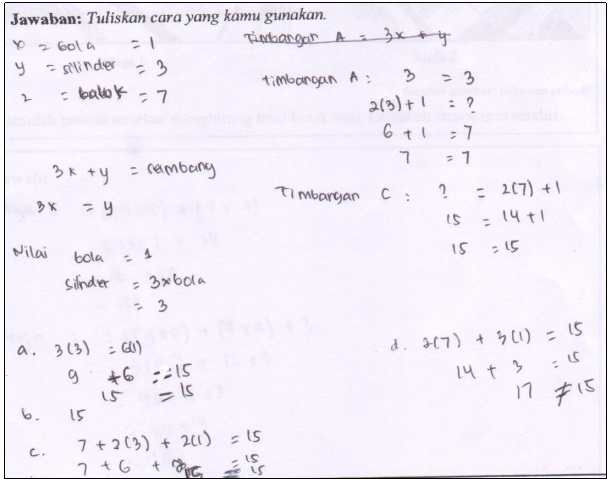 Jawaban: Tuliskan cara yang kamu gunakan.
x = bola = 1
y = silinder = 3
z = balok = 7
3x + y = seimbang
3x = y
Nilai bola = 1
silinder = 3xbola
= 3
a. 3(3) = 6(1)
9 + 6 = 15
15 = 15
b. 15
c. 7 + 2(3) + 2(1) = 15
7 + 6 + 2 = 15
Timbangan A = 3x + y
timbangan A : 3 = 3
2(3) + 1 = ?
6 + 1 = 7
7 = 7
Timbangan C : ? = 2(7) + 1
15 = 14 + 1
15 = 15
d. 2(7) + 3(1) = 15
14 + 3 = 15
17 ≠ 15